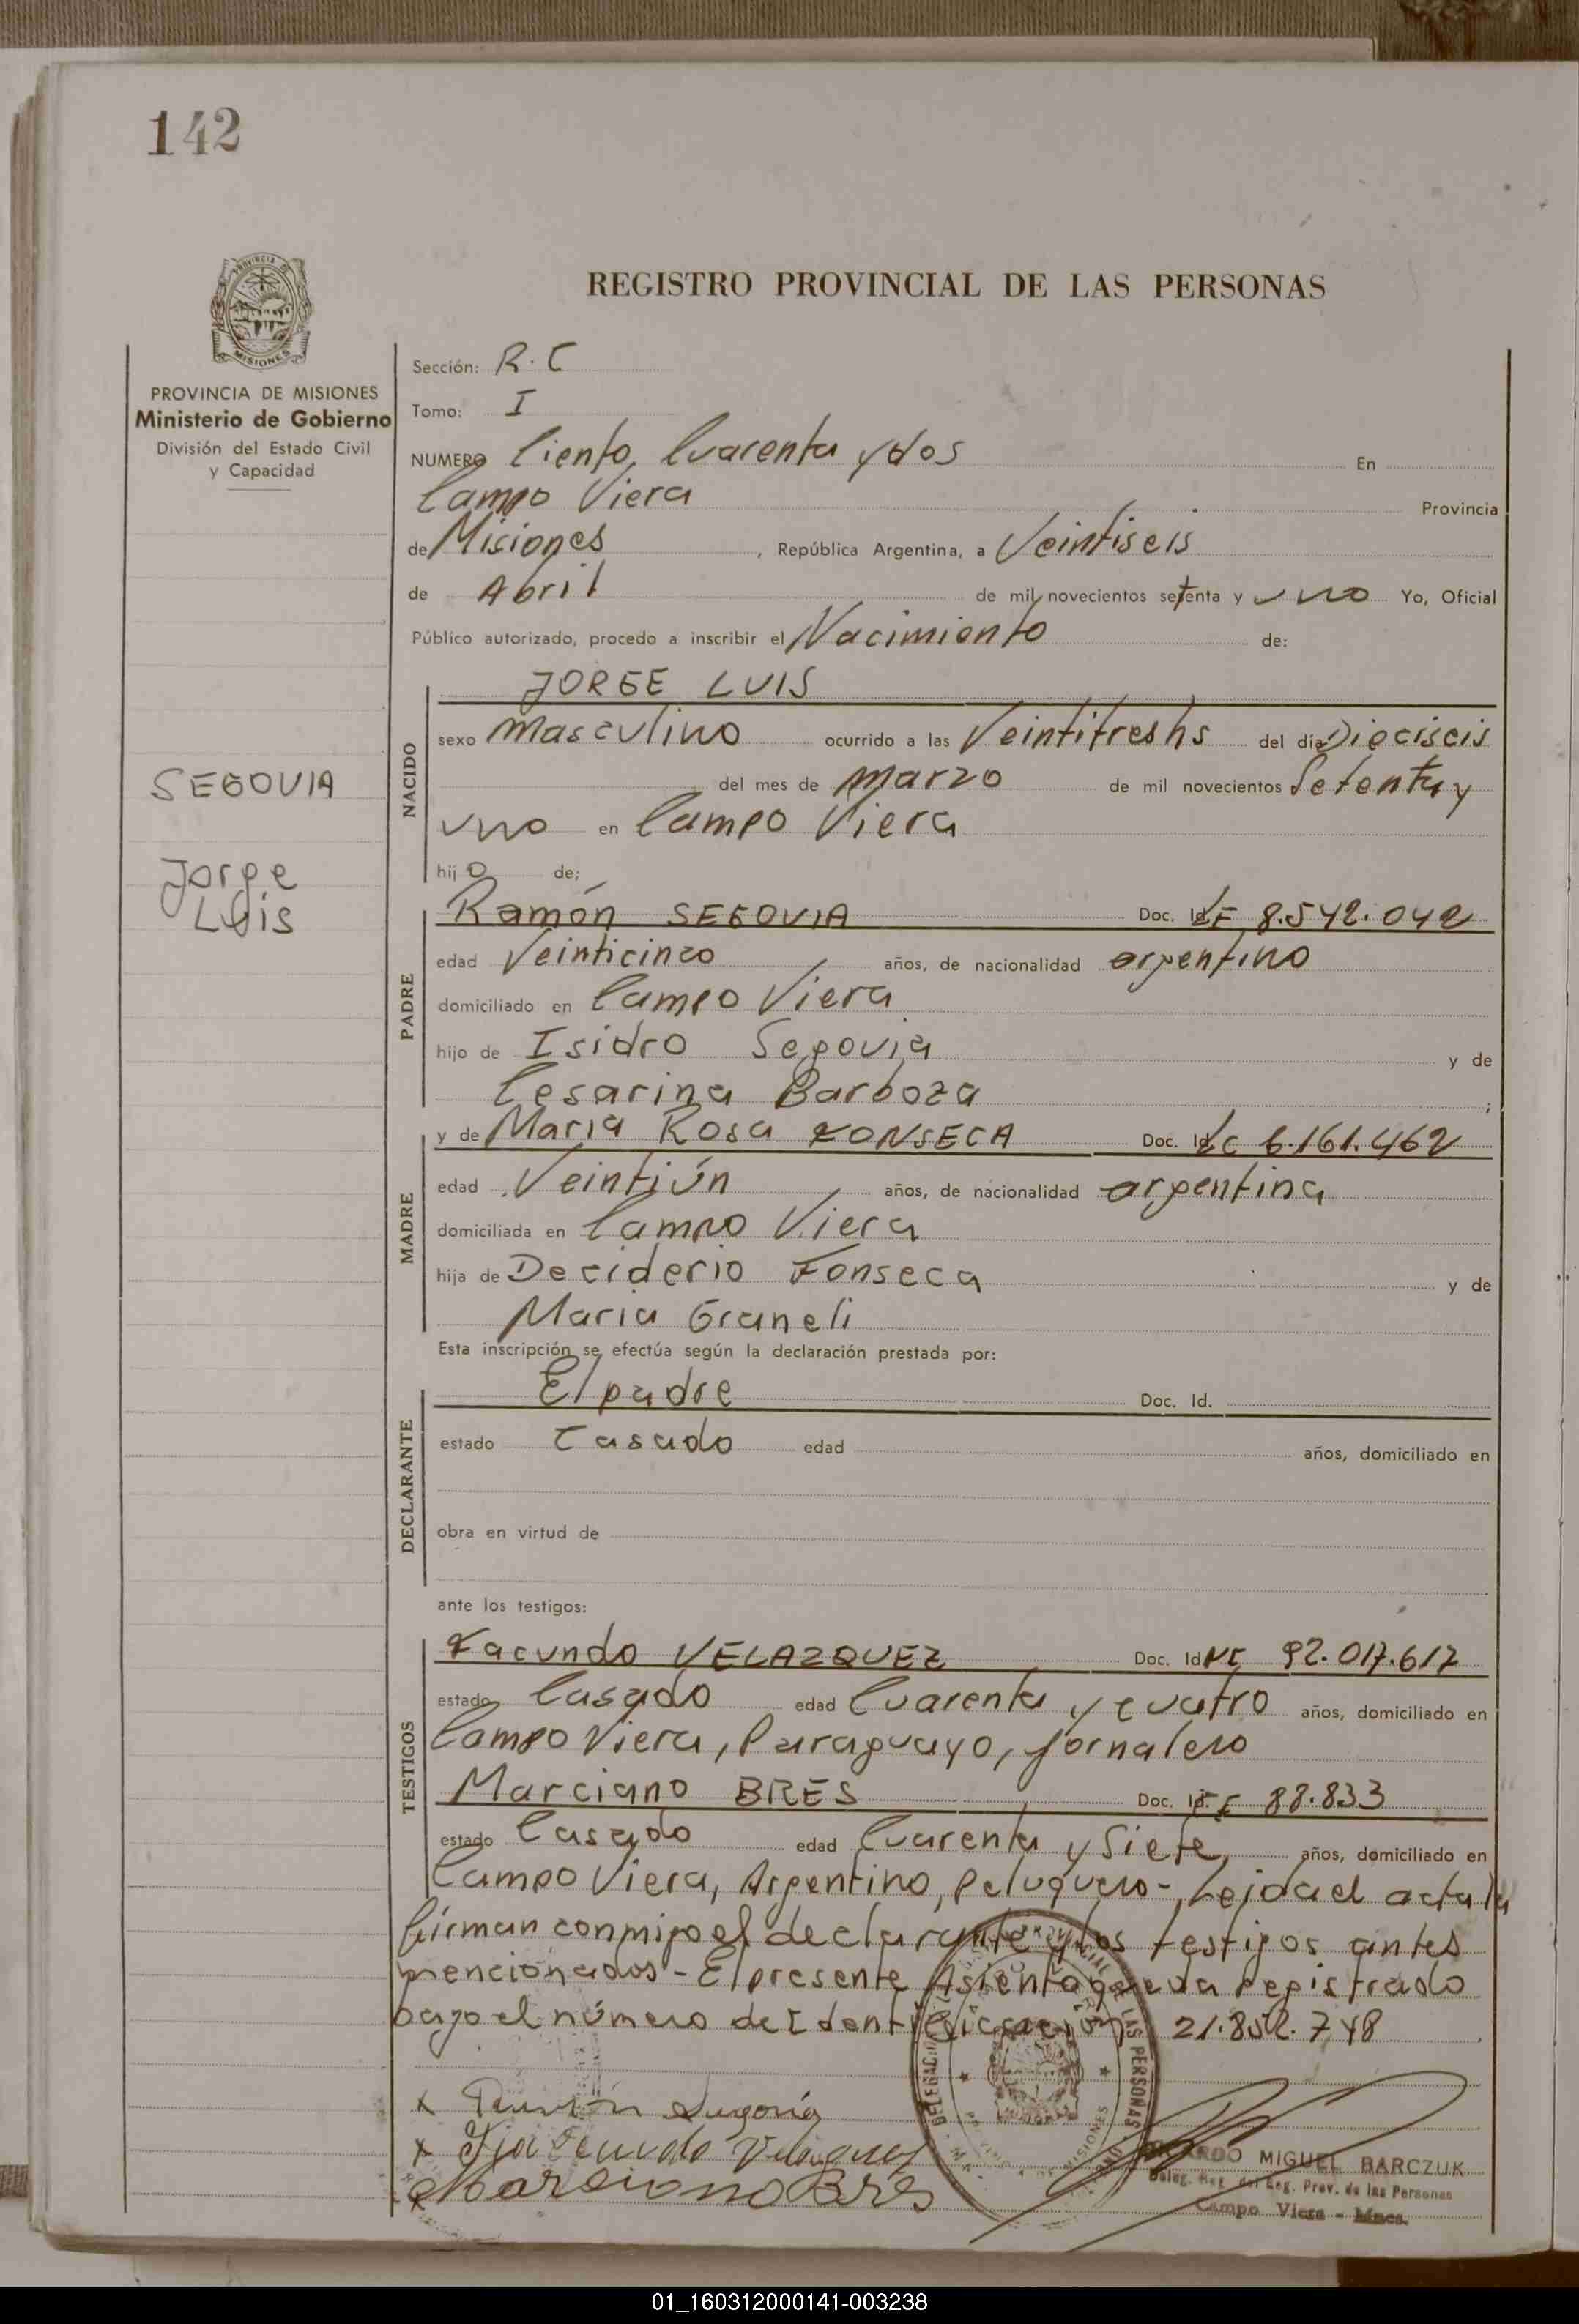 142
PROVINCIA DE
MISIONES
PROVINCIA DE MISIONES
Ministerio de Gobierno
División del Estado Civil
y Capacidad
SEGOVIA
Jorge
Luis
REGISTRO PROVINCIAL DE LAS PERSONAS
Sección: R.C
Tomo: I
NUMERO Ciento, Cuarenta y dos En
Campo Viera Provincia
de Misiones, República Argentina, a Veintiseis
de Abril de mil novecientos setenta y uno Yo, Oficial
Público autorizado, procedo a inscribir el Nacimiento de:
NACIDO
JORGE LUIS
sexo Masculino ocurrido a las Veintitres hs del día Dieciseis
del mes de Marzo de mil novecientos Setenta y
uno en Campo Viera
hijo de;
PADRE
Ramón SEGOVIA Doc. Id. LE 8.542.042
edad Veinticinco años, de nacionalidad argentino
domiciliado en Campo Viera
hijo de Isidro Segovia y de
Cesarina Barboza ;
MADRE
y de Maria Rosa FONSECA Doc. Id. LC 6.161.462
edad Veintiún años, de nacionalidad argentina
domiciliada en Campo Viera
hija de Deciderio Fonseca y de
Maria Graneli
Esta inscripción se efectúa según la declaración prestada por:
DECLARANTE
El padre Doc. Id.
estado Casado edad años, domiciliado en
obra en virtud de
ante los testigos:
TESTIGOS
Facundo VELAZQUEZ Doc. Id. 92.017.617
estado Casado edad Cuarenta y cuatro años, domiciliado en
Campo Viera, Paraguayo, jornalero
Marciano BRES Doc. Id. 88.833
estado Casado edad Cuarenta y Siete años, domiciliado en
Campo Viera, Argentino, Peluquero - Leida el acta la
firman conmigo el declarante y los testigos antes
mencionados - El presente Asiento queda registrado
bajo el número de Identificación 21.852.748
x Ramón Segovia
x Facundo Velazquez
Marciano Bres
LAS PERSONAS
MISIONES
MIGUEL BARCZUK
Deleg. Reg. Prov. de las Personas
Campo Viera - Mnes.
01_160312000141-003238